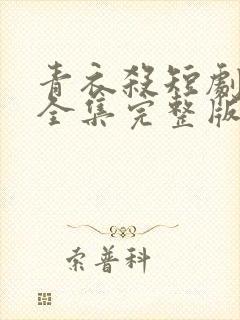 青衣殺短劇
全集完整版
索普科